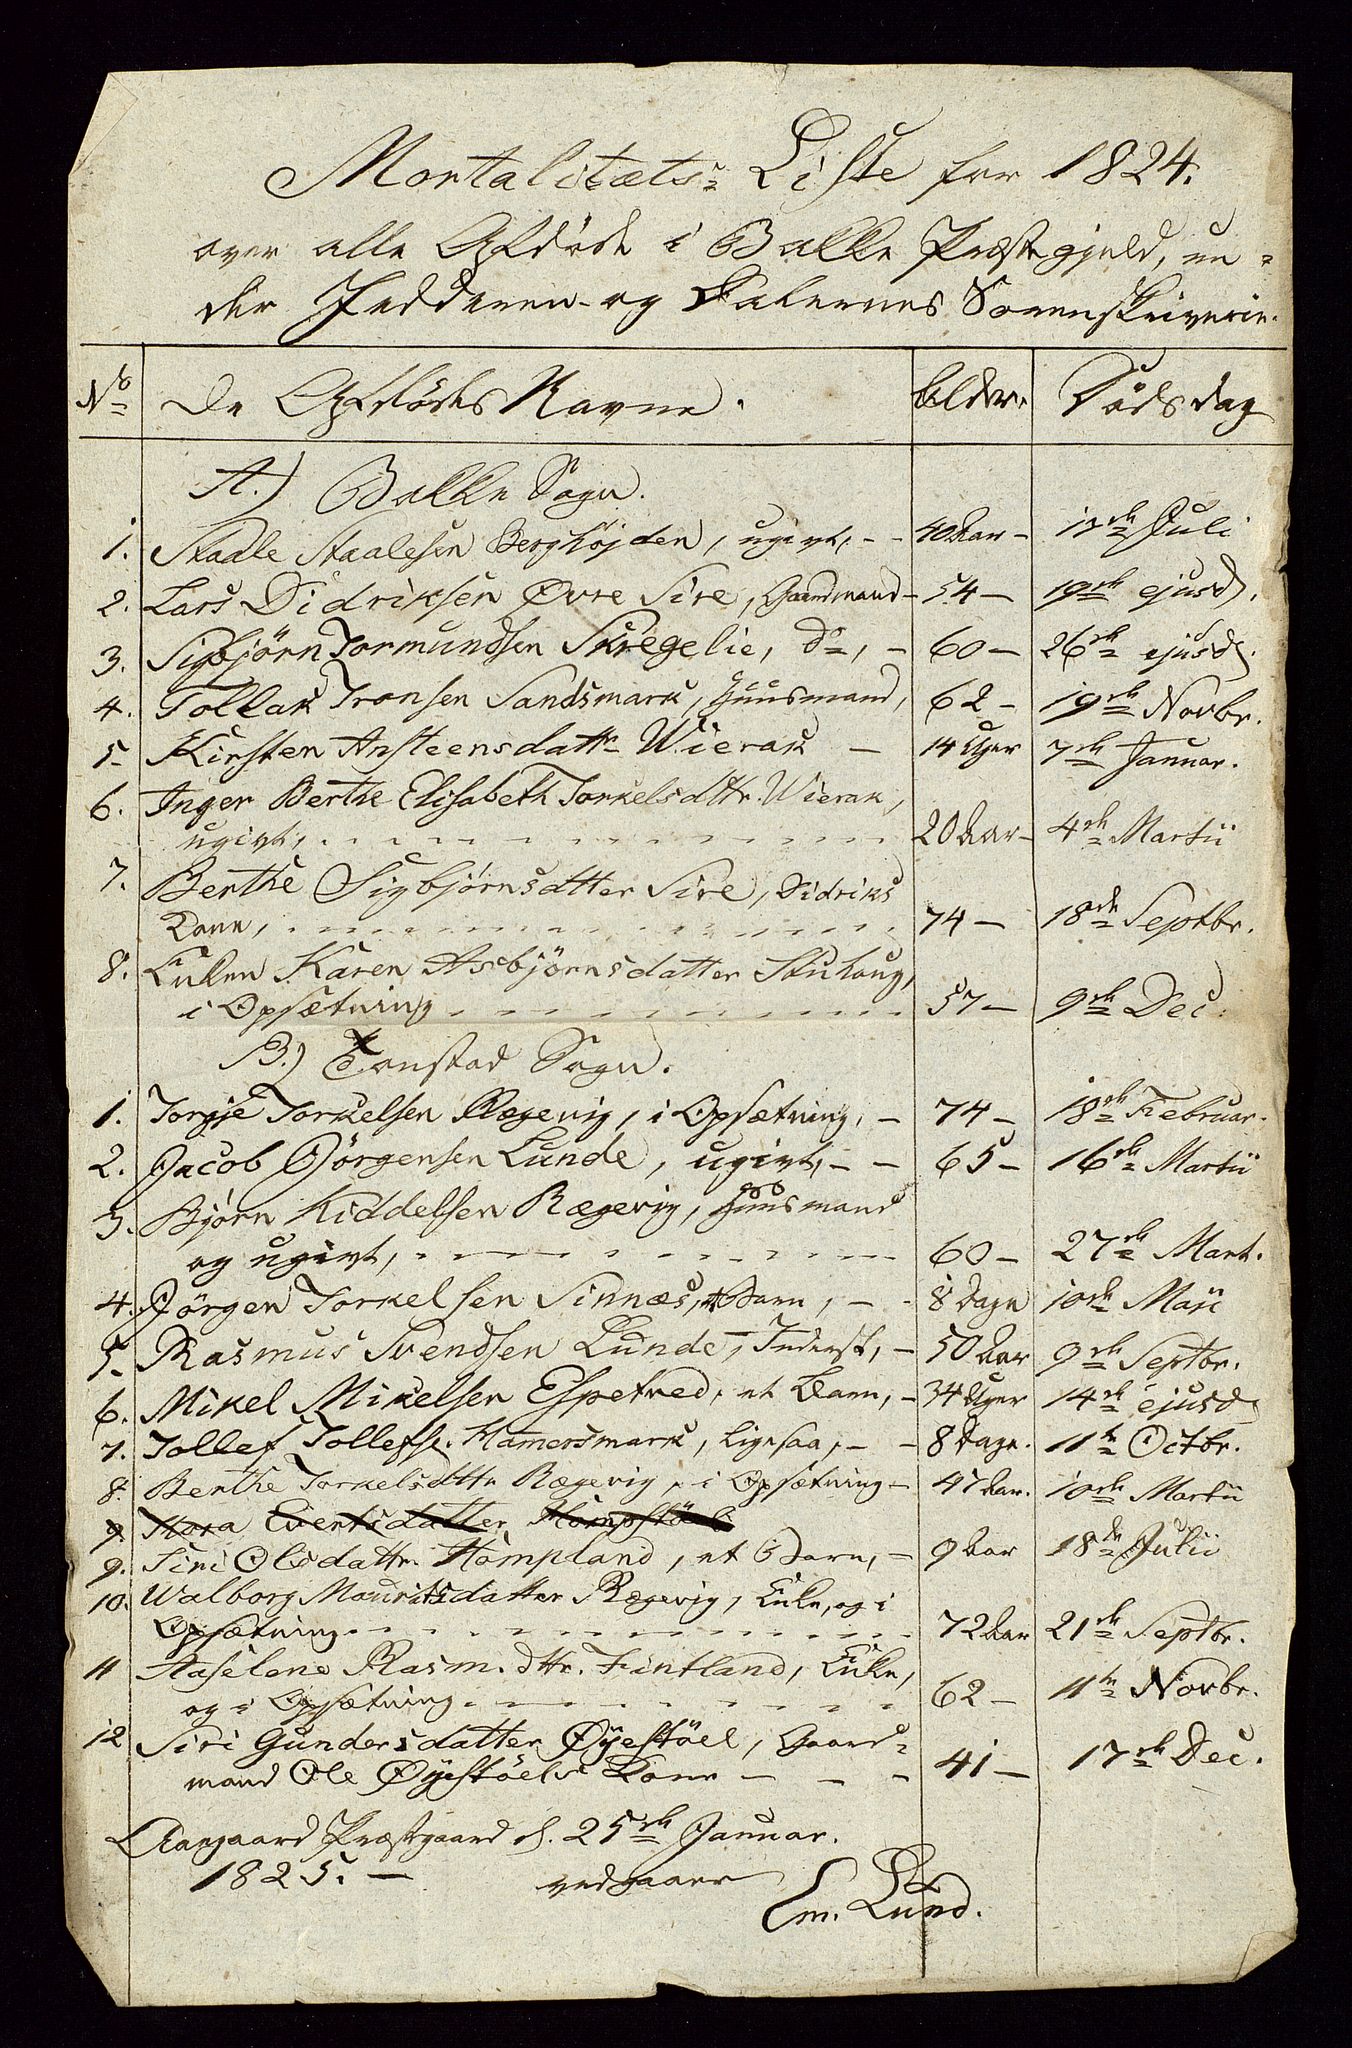 Mortalitæts- Liste for 1824.
over alle Afdøde i Bakke Præstegjeld, un-
der Jedderen- og Dalernes Sorenskriverie.
No De Afdødes Navne. Alder. Dødsdag
A.) Bakke Sogn.
1. Staale Staalesen Berghøjden, ugivt, - - 40 Aar - 12de Juli
2. Lars Didriksen Øvre Sire, Gaardmand - 54 - 19de ejusd.
3. Sigbjørn Tormundsen Skregelie, do, - 60 - 26de ejusd.
4. Tollak Tronsen Sandsmark, Huusmand, 62 - 19de Novbr.
5. Kirsten Ansteensdattr Wierak - 14 Uger 7de Januar.
6. Inger Berthe Elisabeth Torkelsdttr. Wierak,
ugivt, 20 Aar - 4de Martii
7. Berthe Sigbjørnsdtter Sire, Didriks
Kone, 74 - 18de Septbr.
8. Enken Karen Asbjørnsdatter Stulaug,
i Opsætning 57 - 9de Dec.
B.) Tonstad Sogn.
1. Torgje Torkelsen Rægevig, i Opsætning, - 74 - 18de Februar.
2. Jacob Jørgensen Lunde, ugivt, - - 65 - 16de Martii
3. Bjørn Kiddelsen Rægevig, Huusmand
og ugivt, 60 - 27de Mart.
4. Jørgen Torkelsen Sinnæs, Barn, - - 8 Dage 10de Maji
5. Rasmus Svendsen Lunde, Inderst, - 50 Aar 9de Septbr.
6. Mikel Mikelsen Espetved, et Barn, - 34 Uger 14de ejusd
7. Tollef Tollefse. Hamersmark, ligesaa, - - 8 Dage. 11te Octbr.
8. Berthe Torkelsdttr Rægevig, i Opsætning - 47 Aar. 10de Martii
9. Evertsdatter
9. Siri Olsdattr. Hompland, et Barn, - 9 Aar 18de Julii
10. Walborg Mouritsdatter Rægevig, Enke, og i
Opsætning 72 Aar 21de Septbr.
11 Aaselene Rasm. dttr. Fintland, Enke,
og i Opsætning 62 - 11te Novbr.
12 Siri Gundersdatter Øyestöel, Gaard-
mand Ole Øyestöels Kone - - - 41 - 17de Dec.
Præstgaard d. 25de Januar.
1825. - vedgaaer
Em. Lund.